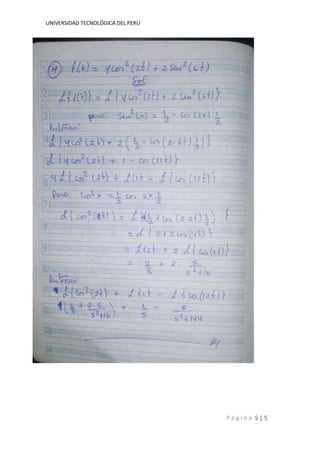 UNIVERSIDAD TECNOLÓGICA DEL PERÚ
④ f(t) = 4cos²(2t) + 2 sen²(6t)
Sol
ℒ{f(t)} = ℒ{4cos²(2t) + 2 sen²(6t)}
pero: sen²(x) = 1/2 - cos(2x) 1/2
ℒ{4cos²(2t) + 2(1/2 - cos(2.6t) 1/2)}
ℒ{4cos²(2t) + 1 - cos(12t)}
4ℒ{cos²(2t) + ℒ{1} - ℒ{cos(12t)}
Pero: cos²x = 1/2 cos 2x 1/2
= ℒ{2+2cos(4t)}
= ℒ{2} + 2 ℒ{cos(4t)}
= 2/s + 2. s/s²+16
ℒ{cos²(2t) + ℒ{1} - ℒ{cos(12t)}
+ 1/s - s/s²+144
Página 5 | 5